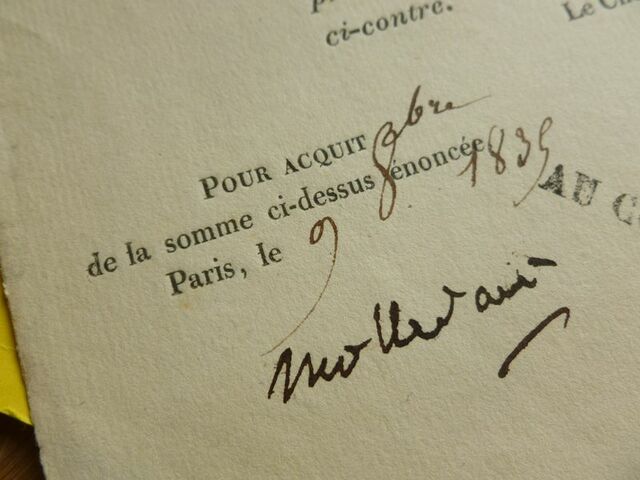 ci-contre.
POUR ACQUIT
de la somme ci-dessus énoncée
Paris, le 9 8bre 1835
AU
Mollevaut